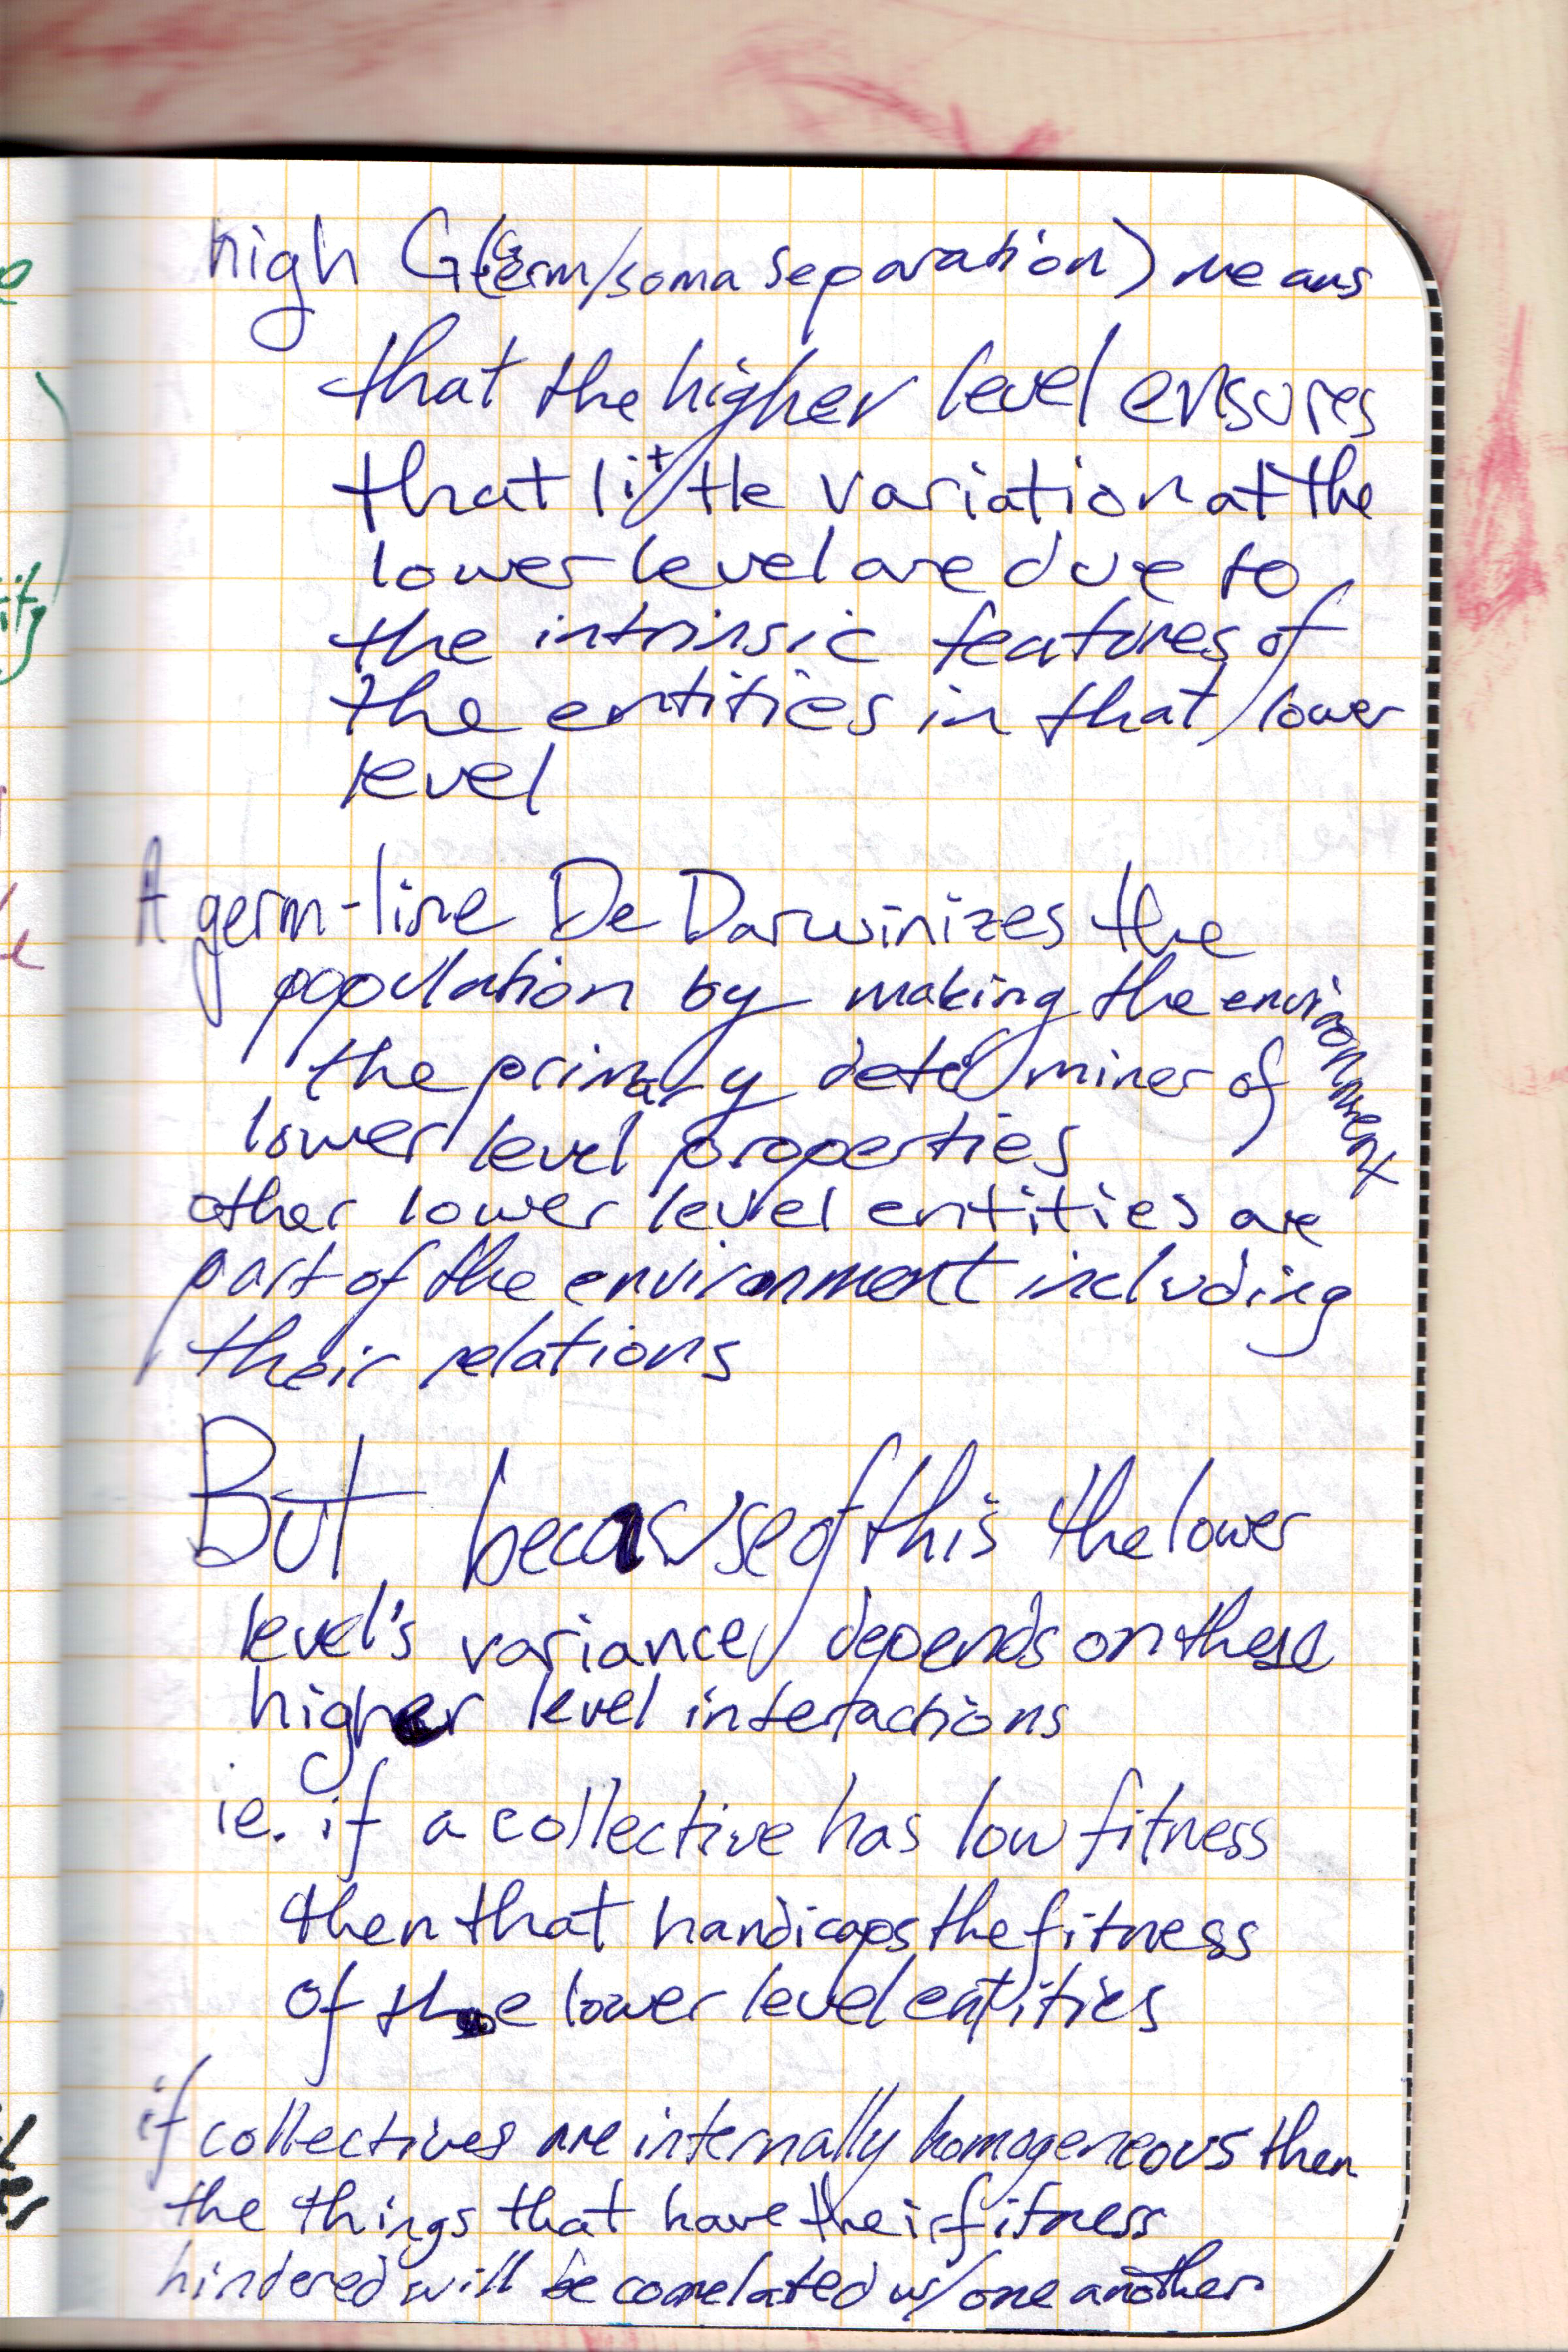 high G (Germ/soma separation) means
that the higher level ensures
that little variation at the
lower level are due to
the intrinsic features of
the entities in that lower
level
A germ-line De Darwinizes the
population by making the environment
the primary determiner of
lower level properties
other lower level entities are
part of the environment including
their relations
But because of this the lower
level's variance depends on these
higher level interactions
ie. if a collective has low fitness
then that handicaps the fitness
of the lower level entities
if collectives are internally homogeneous then
the things that have their fitness
hindered will be correlated w/ one another